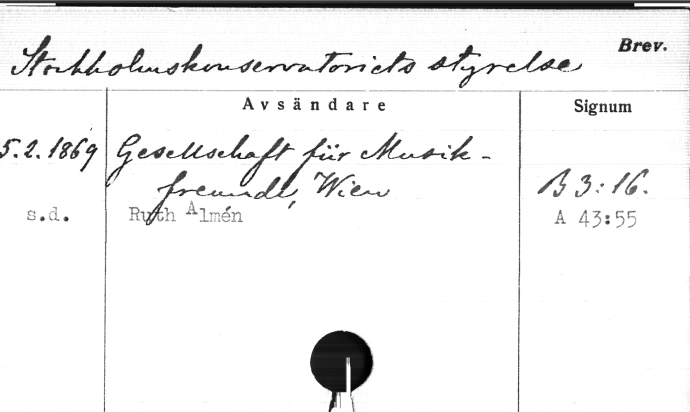 Brev.
Stockholmskonservatoriets styrelse
Avsändare
Signum
5.2.1869 Gesellschaft für Musik-
freunde, Wien B 3:16.
s.d. Ruth Almén A 43:55